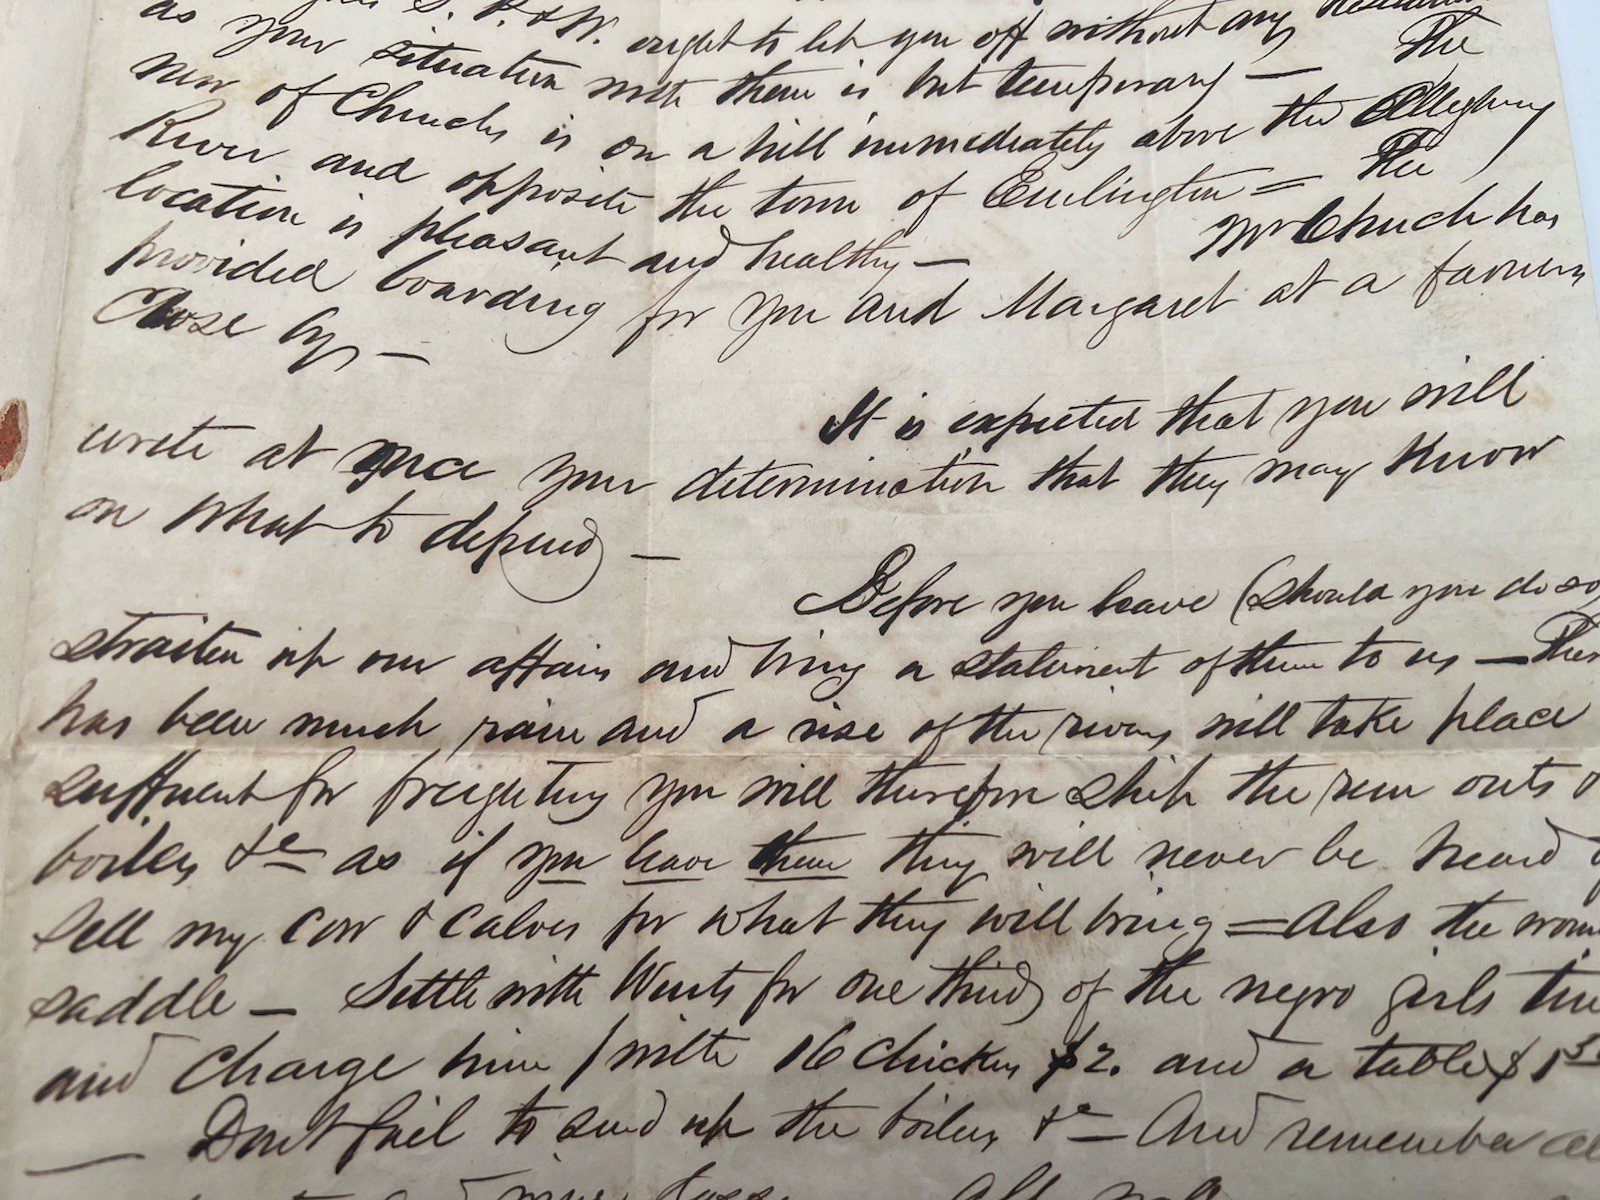 S. P. & W. ought to let you off without any
as your situation with them is but temporary — The
view of Churchs is on a hill immediately above the Alleghany
River and opposite the town of Emlington = The
location is pleasant and healthy — Mr Church has
provided boarding for you and Margaret at a farmers
Close by —
It is expected that you will
write at once your determination that they may know
on what to depend —
Before you leave (should you do so)
straiten up our affairs and bring a statement of them to us — There
has been much rain and a rise of the rivers will take place
sufficient for freighting you will therefore ship the rem outs &
boilers &c as if you leave them they will never be heard of
Sell my cow & calves for what they will bring = Also the
saddle — Settle with Wents for one third of the negro girls time
and Charge him / with 16 chickens $2. and a table $1
— Dont fail to send up the boilers &c — And remember